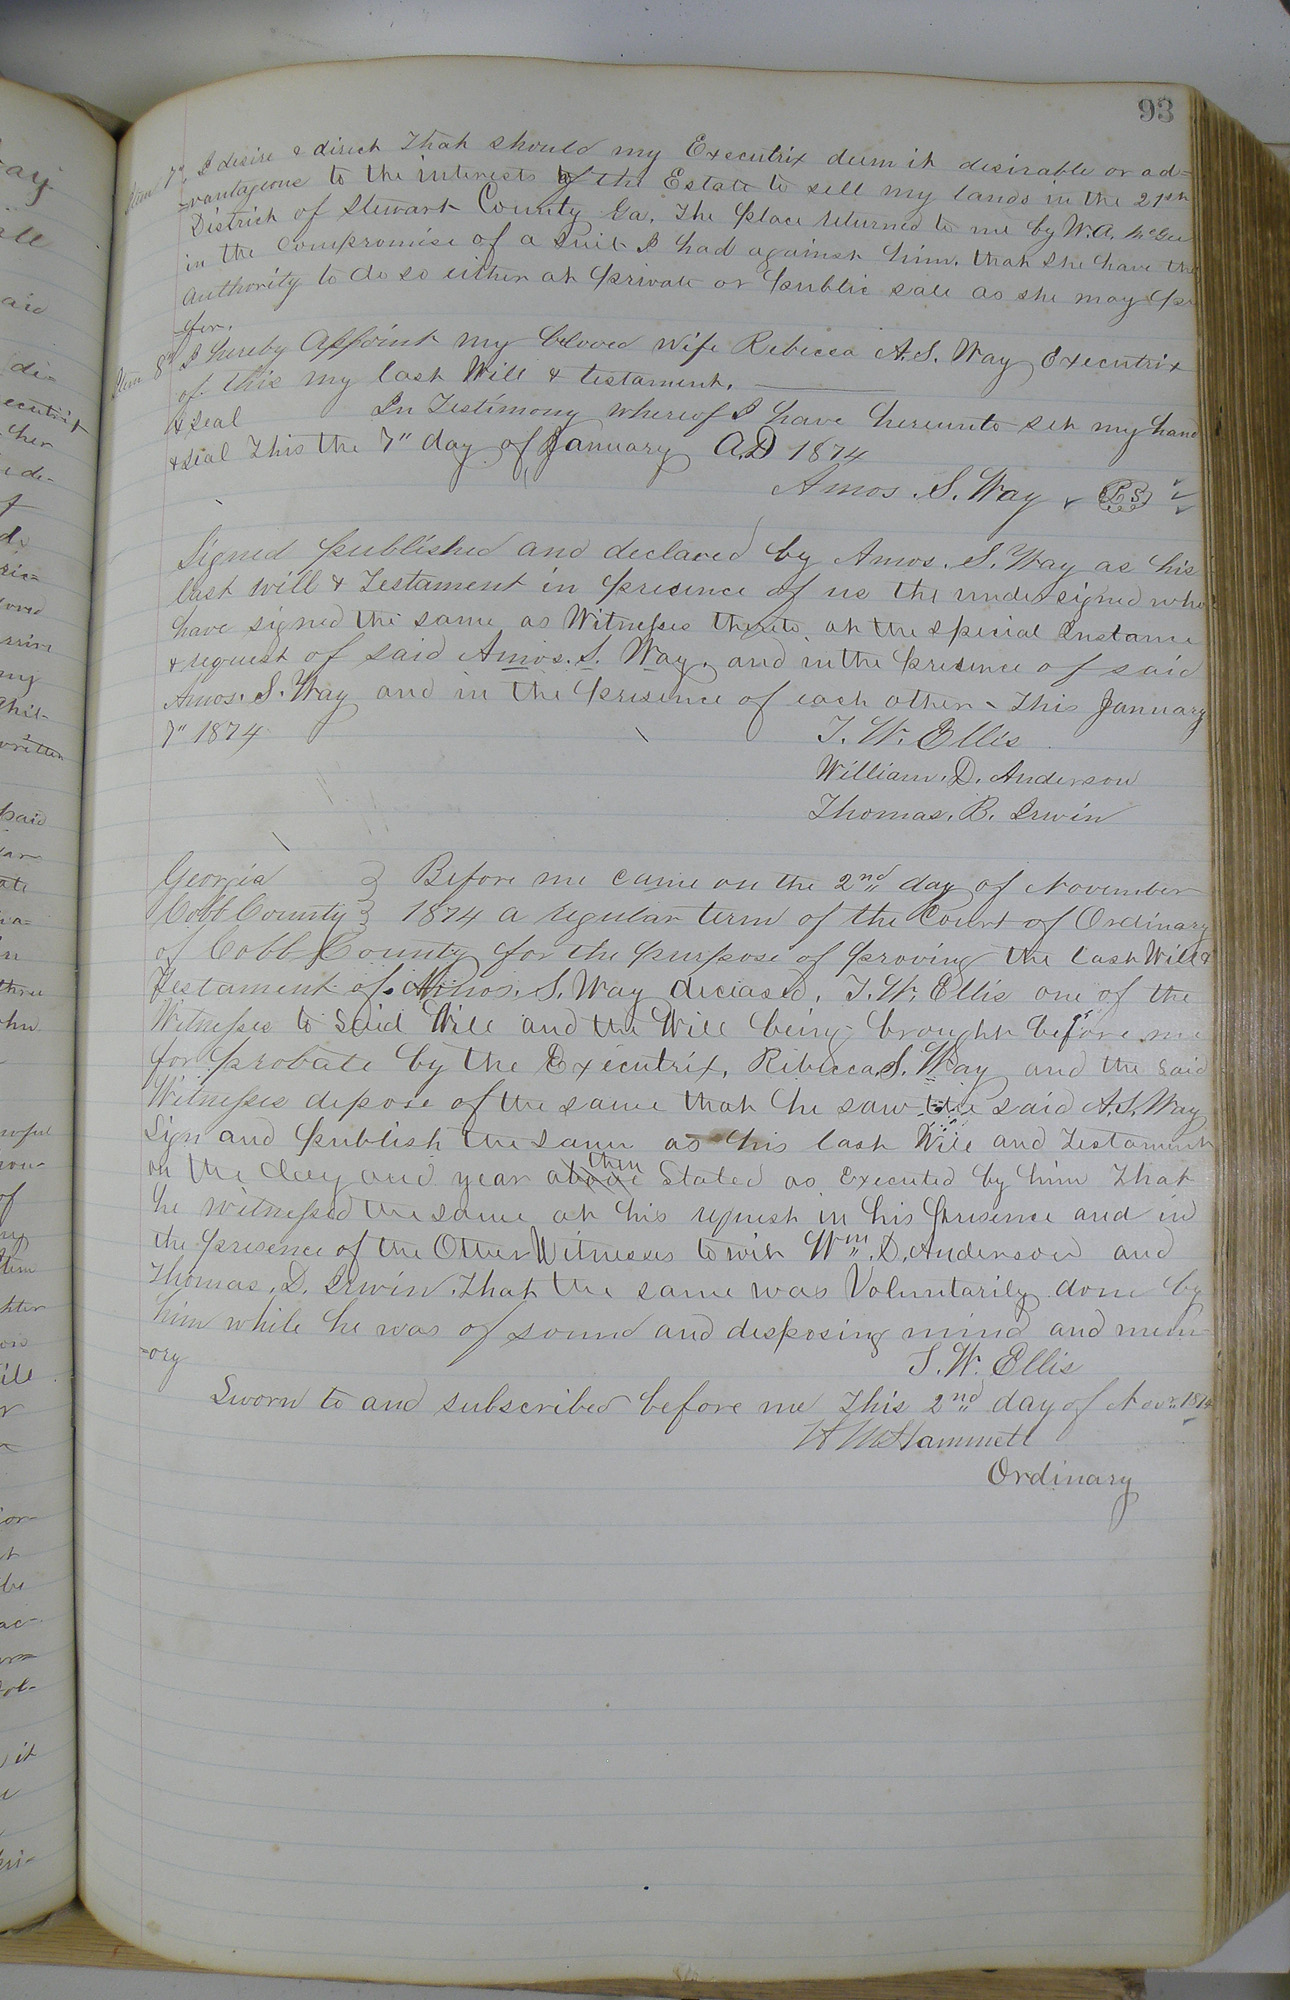 93
Item 7th I desire & direct that should my Executrix deem it desirable or ad=
=vantageous to the interests of the Estate to sell my lands in the 21st
District of Stewart County Ga. The place returned to me by W. A. McGee
in the compromise of a suit I had against him. that she have the
authority to do so either at private or public sale as she may pre
=fer.
Item 8th I hereby Appoint my beloved wife Rebecca A. S. Way Executrix
of this my last Will & testament.
& seal In Testimony whereof I have hereunto set my hand
& seal This the 7" day of January A.D 1874
Amos. S. Way L S
Signed published and declared by Amos. S. Way as his
last will & Testament in presence of us the undersigned who
have signed the same as Witnesses thereto. at the special Instance
& request of said Amos. S. Way. and in the presence of said
Amos. S. Way and in the presence of each other - This January
7" 1874 T. W. Ellis
William. D. Anderson
Thomas. B. Irwin
Georgia } Before me came on the 2nd day of November
Cobb County } 1874 a regular term of the Court of Ordinary
of Cobb County for the purpose of proving the last Will &
Testament of Amos. S. Way deceased. T. W. Ellis one of the
Witnesses to said Will and the Will being brought before me
for probate by the Executrix, Rebecca. S. Way and the said
Witnesses depose of the same that he saw the said A. S. Way
Sign and publish the same as his last Will and Testament
then
on the day and year above Stated as Executed by him That
he witnessed the same at his request in his presence and in
the presence of the Other Witnesses to wit Wm. D. Anderson and
Thomas. D. Irwin. That the same was Voluntarily done by
him while he was of sound and disposing mind and mem
=ory T. W. Ellis
Sworn to and subscribed before me This 2nd day of Novr. 1874
Hammett
Ordinary